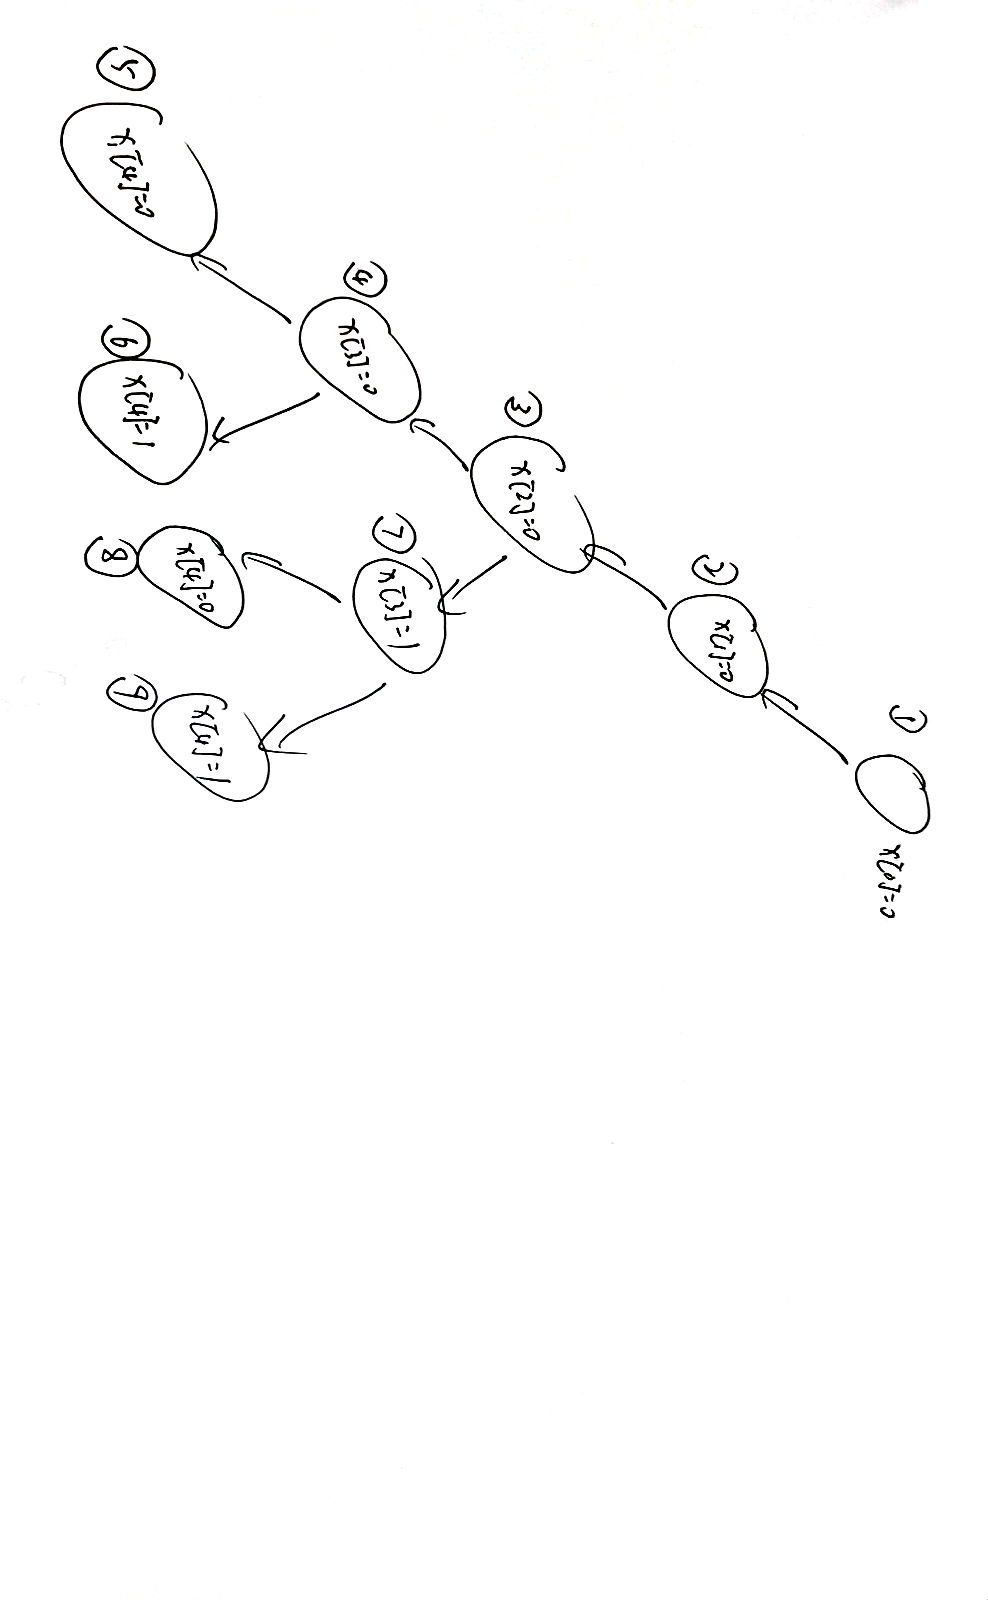 ① x[0]=0
② x[1]=0
③ x[2]=0
④ x[3]=0
⑦ x[3]=1
⑤ x[4]=0
⑥ x[4]=1
x[4]=0
x[4]=1
⑧
⑨